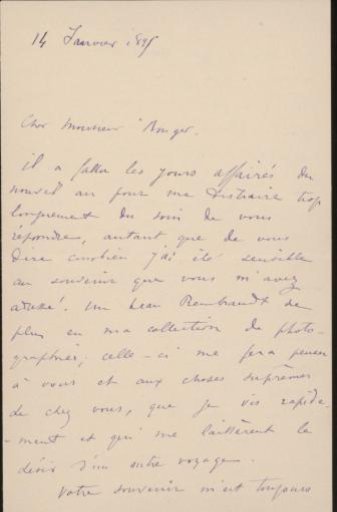 14 Janvier 189
Cher Monsieur
il a fallu les jours affairés du
nouvel an pour me distraire trop
longuement du soin de vous
répondre, autant que de vous
dire combien j'ai été sensible
au souvenir que vous m'avez
adressé. Un beau Rembrandt de
plus en ma collection de photo-
graphies; celle-ci me fera penser
à vous et aux choses suprêmes
de chez vous, que je vis rapide-
-ment et qui me laissèrent le
désir d'un autre voyage.
Votre souvenir m'est toujours